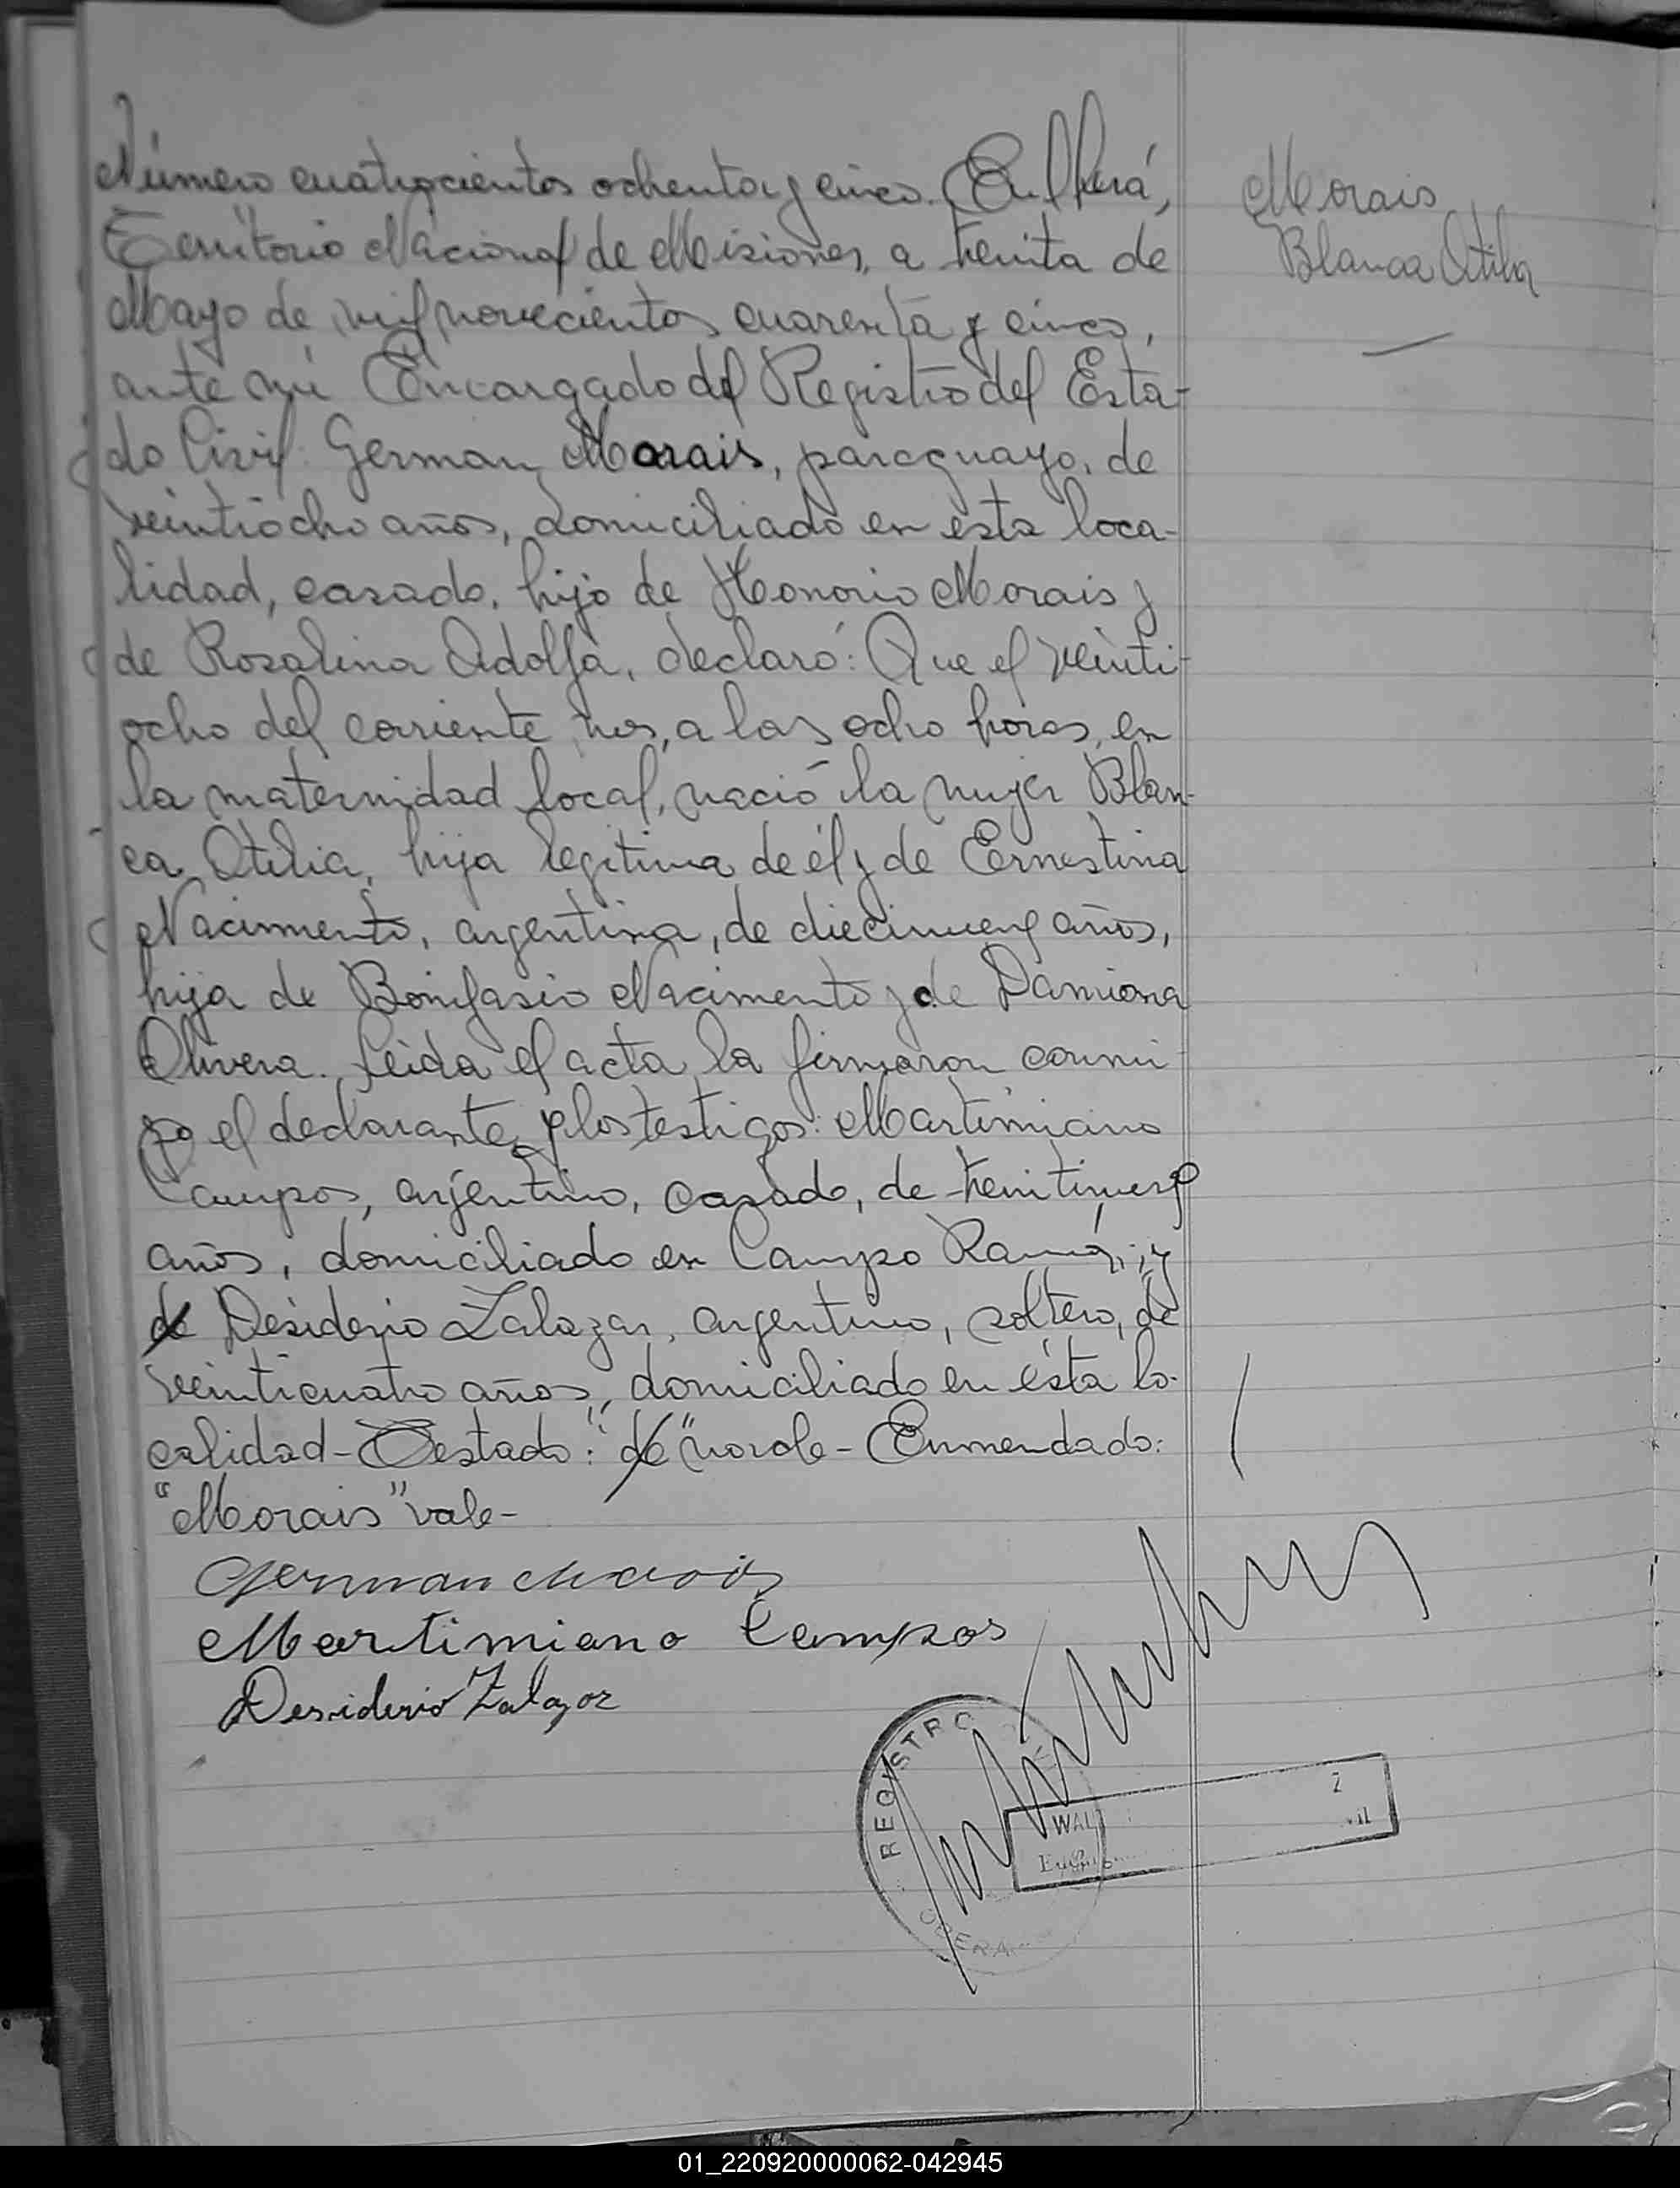 Número cuatrocientos ochenta y cinco. En Oberá,
Morais
Territorio Nacional de Misiones, a treinta de
Blanca Otilia
Mayo de mil novecientos cuarenta y cinco,
ante mi Encargado del Registro del Esta-
do Civil: German Morais, paraguayo, de
veintiocho años, domiciliado en esta loca-
lidad, casado, hijo de Honorio Morais y
de Rosalina Adolfa, declaró: Que el veinti-
ocho del corriente mes, a las ocho horas, en
la maternidad local, nació la mujer Blan-
ca Otilia, hija legitima de él y de Ernestina
Nacimento, argentina, de diecinueve años,
hija de Bonifasio Nacimento y de Damiana
Olivera. Leida el acta la firmaron conmi
go el declarante y los testigos: Martimiano
Campos, arjentino, casado, de treintinueve
años, domiciliado en Campo Ramón; y
de Desiderio Zalazar, argentino, soltero, de
veinticuatro años, domiciliado en ésta lo-
calidad - Testado: "de" no vale - Enmendado:
"Morais" vale -
German Morais
Martimiano Campos
Desiderio Zalazar
REGISTRO
WAL
OBERA
01_220920000062-042945